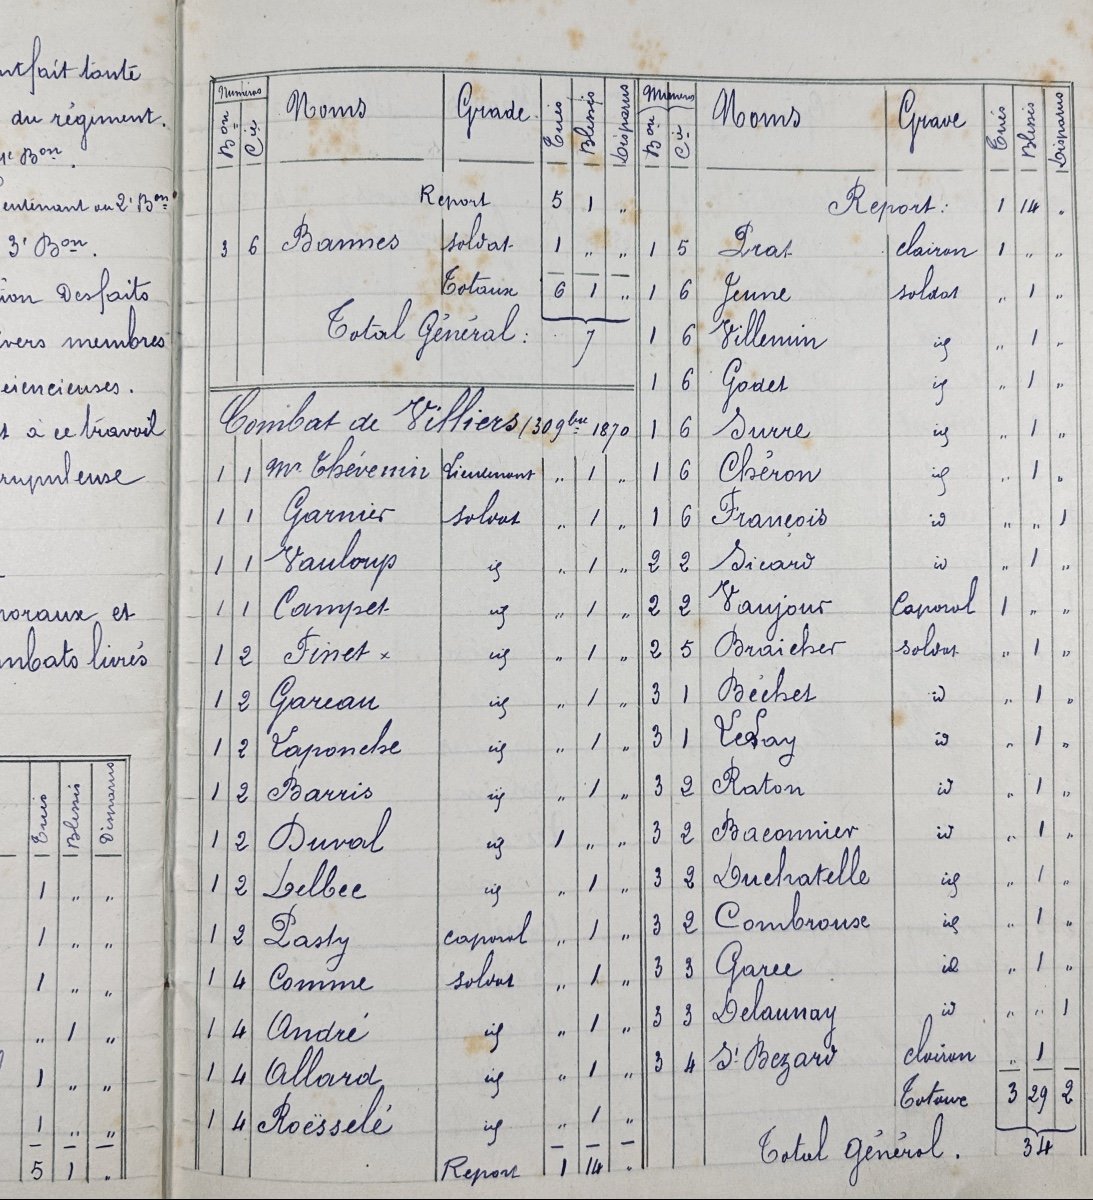 ntfait toute
du régiment.
Bon.
Lieutenant au 2e Bon
3e Bon.
ion Desfaits
vers membres
eiencieuses.
t à ce travail
rupuleuse
poraux et
mbats livrés
Tués Blessés Disparus
1 " "
1 " "
1 " "
" 1 "
1 " "
1 " "
5 1 "
Numéros Noms Grade Tués Blessés Disparus
Bon Cie
Report 5 1 "
3 6 Bannes soldat 1 " "
Totaux 6 1 "
Total Général : 7
Combat de Villiers (30 9bre 1870
1 1 Mr Thévenin Lieutenant " 1 "
1 1 Garnier soldat " 1 "
1 1 Vauloup id " 1 "
1 1 Campet id " 1 "
1 2 Finet x id " 1 "
1 2 Gareau id " 1 "
1 2 Laponche id " 1 "
1 2 Barris id " 1 "
1 2 Duval id 1 " "
1 2 Delbec id " 1 "
1 2 Pasty caporal " 1 "
1 4 Comme soldat " 1 "
1 4 André id " 1 "
1 4 Allard id " 1 "
1 4 Roësselé id " 1 "
Report 1 14 "
Numéros Noms Grave Tués Blessés Disparus
Bon Cie
Report : 1 14 "
1 5 Prat clairon 1 " "
1 6 Jeune soldat " 1 "
1 6 Villemin id " 1 "
1 6 Godet id " 1 "
1 6 Surre id " 1 "
1 6 Chéron id " 1 "
1 6 François id " " 1
2 2 Sicard id " 1 "
2 2 Vaujour Caporal 1 " "
2 5 Braicher soldat " 1 "
3 1 Béchet id " 1 "
3 1 LeLay id " 1 "
3 2 Raton id " 1 "
3 2 Baconnier id " 1 "
3 2 Duchatelle id " 1 "
3 2 Combrouse id " 1 "
3 3 Garee id " 1 "
3 3 Delaunay id " " 1
3 4 St Bezard clairon " 1
Totaux 3 29 2
Total général . 34